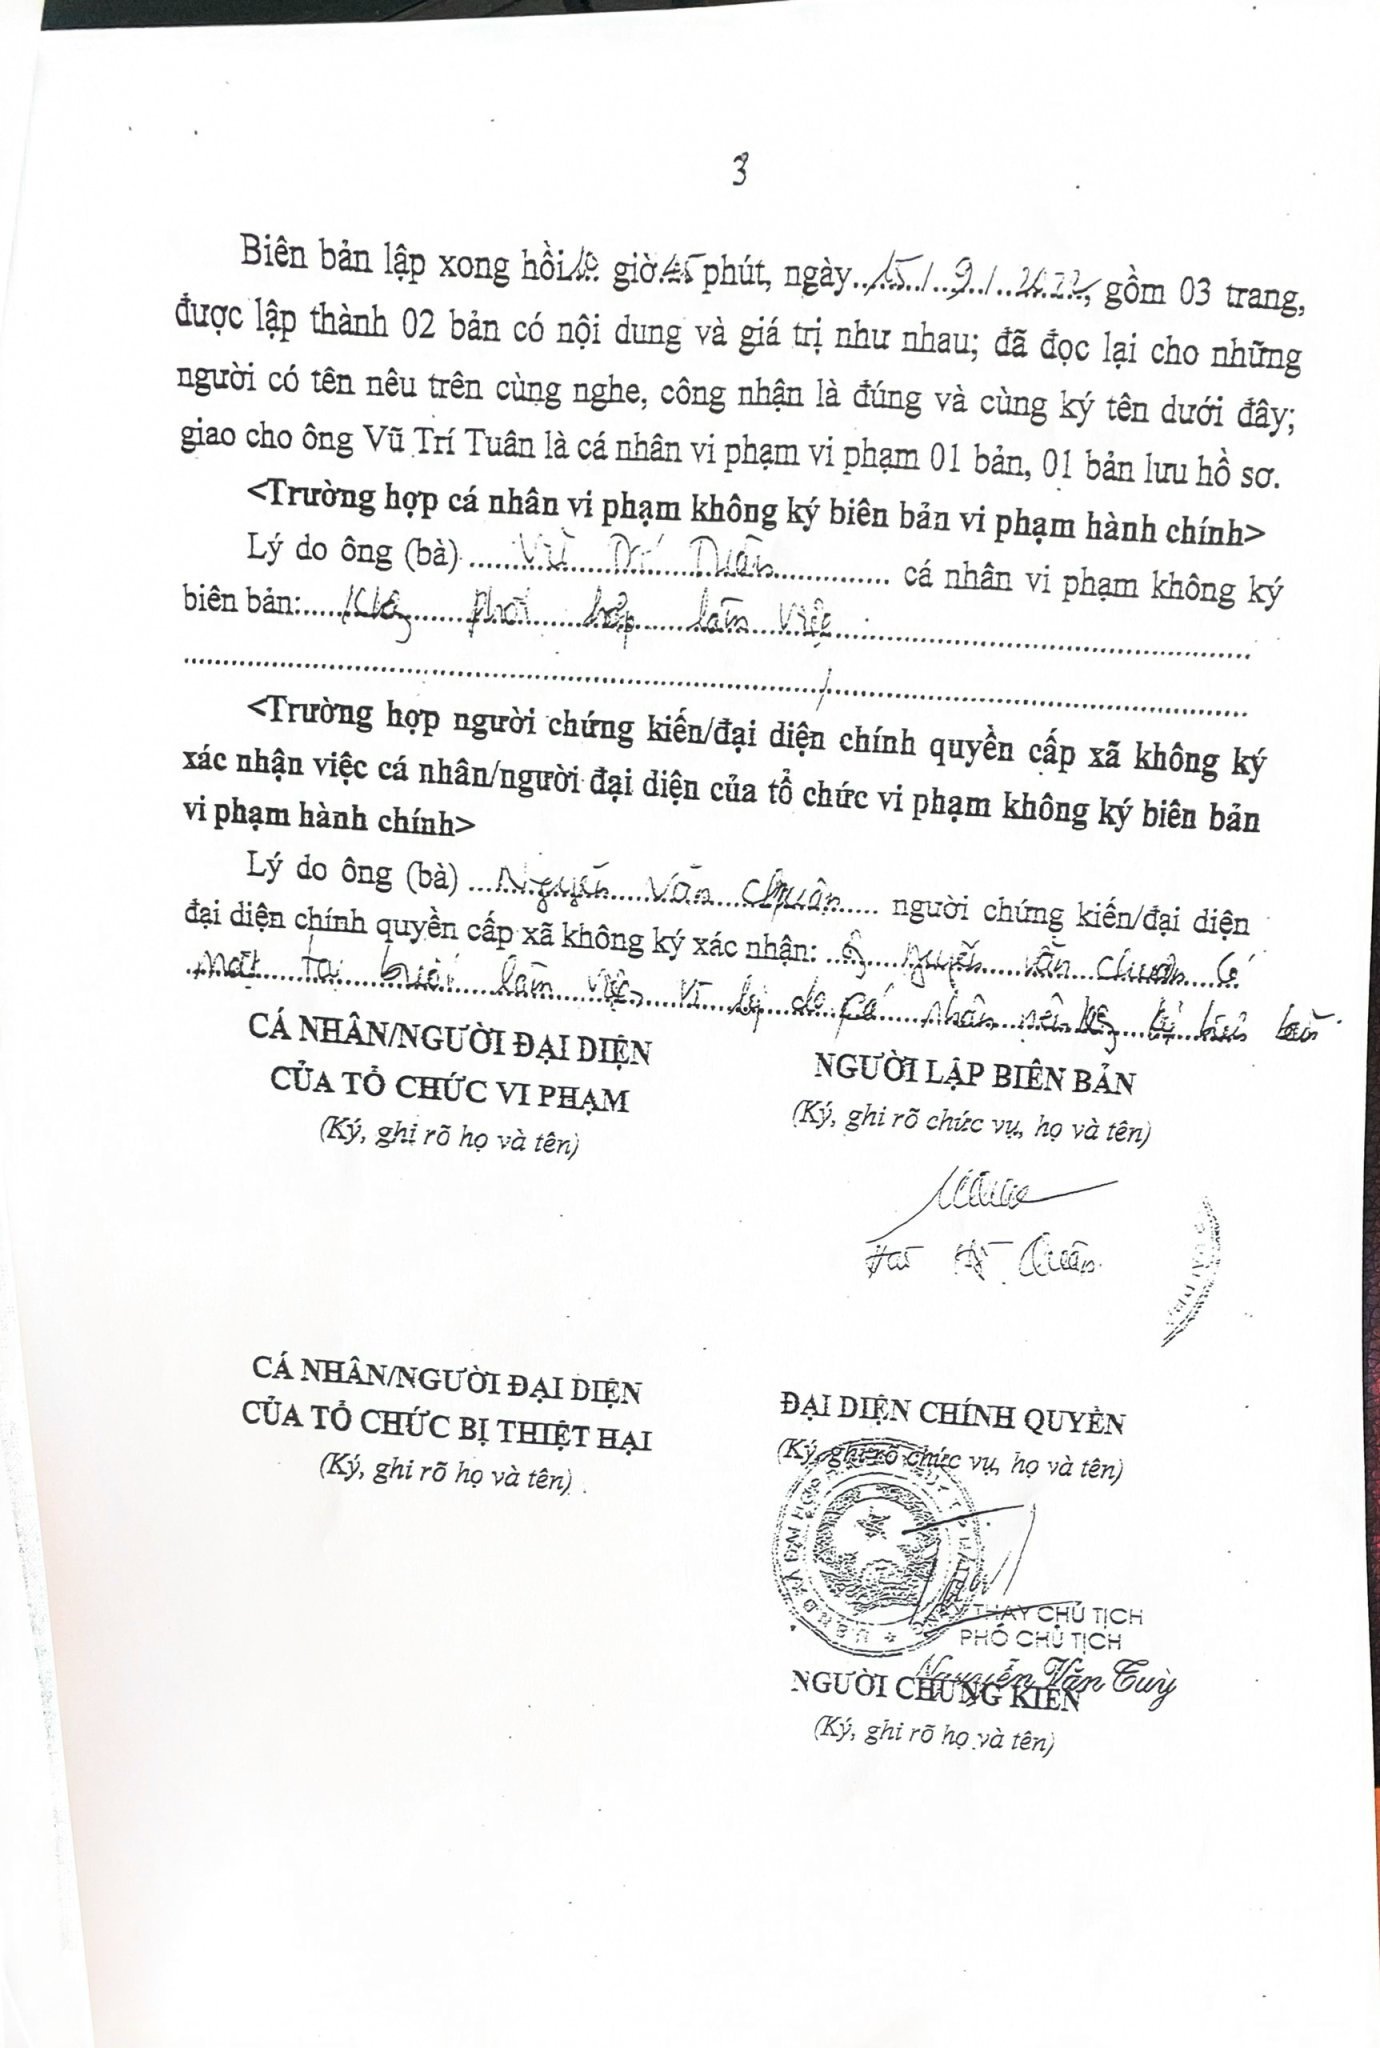 3
Biên bản lập xong hồi.10. giờ.45 phút, ngày...15./..9../..2022., gồm 03 trang,
được lập thành 02 bản có nội dung và giá trị như nhau; đã đọc lại cho những
người có tên nêu trên cùng nghe, công nhận là đúng và cùng ký tên dưới đây;
giao cho ông Vũ Trí Tuân là cá nhân vi phạm vi phạm 01 bản, 01 bản lưu hồ sơ.
<Trường hợp cá nhân vi phạm không ký biên bản vi phạm hành chính>
Lý do ông (bà) ......Vũ Trí Tuân............... cá nhân vi phạm không ký
biên bản:.....Khg phối hợp làm việc.....
<Trường hợp người chứng kiến/đại diện chính quyền cấp xã không ký
xác nhận việc cá nhân/người đại diện của tổ chức vi phạm không ký biên bản
vi phạm hành chính>
Lý do ông (bà) ...Nguyễn Văn Chuân.... người chứng kiến/đại diện
đại diện chính quyền cấp xã không ký xác nhận: ..Ô Nguyễn Văn Chuân Có
mặt tại buổi làm việc, vì lý do cá nhân nên khg ký biên bản.
CÁ NHÂN/NGƯỜI ĐẠI DIỆN
CỦA TỔ CHỨC VI PHẠM
(Ký, ghi rõ họ và tên)
NGƯỜI LẬP BIÊN BẢN
(Ký, ghi rõ chức vụ, họ và tên)
CÁ NHÂN/NGƯỜI ĐẠI DIỆN
CỦA TỔ CHỨC BỊ THIỆT HẠI
(Ký, ghi rõ họ và tên)
ĐẠI DIỆN CHÍNH QUYỀN
(Ký, ghi rõ chức vụ, họ và tên)
THAY CHỦ TỊCH
PHÓ CHỦ TỊCH
Nguyễn Văn Tuỳ
NGƯỜI CHỨNG KIẾN
(Ký, ghi rõ họ và tên)